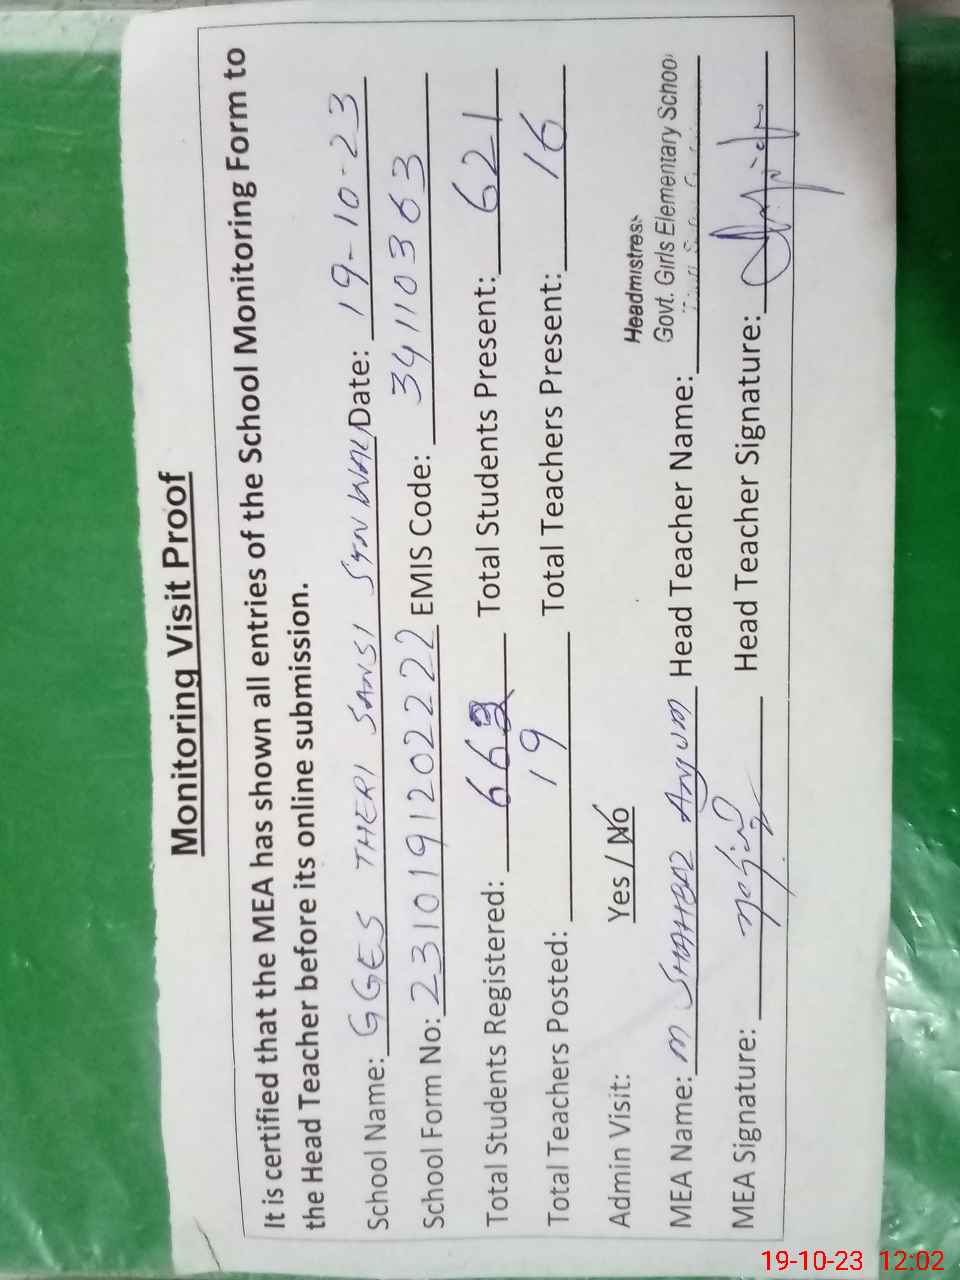 Monitoring Visit Proof
It is certified that the MEA has shown all entries of the School Monitoring Form to
the Head Teacher before its online submission.
School Name: GGES THERI SANSI Date: 19-10-23
School Form No: 2310191202222 EMIS Code: 34110363
Total Students Registered: 662 Total Students Present: 621
Total Teachers Posted: 19 Total Teachers Present: 16
Admin Visit: Yes / No
Headmistress
Govt. Girls Elementary School
MEA Name: M SHAHBAZ Anjum Head Teacher Name:
MEA Signature: Head Teacher Signature:
19-10-23 12:02